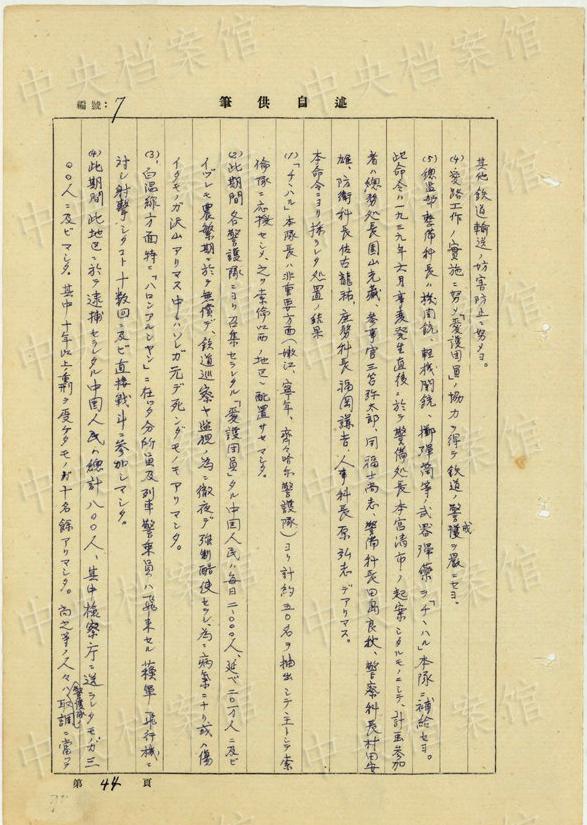 編號：7
筆供自述
其他鉄道輸送ノ妨害防止ニ努メヨ。
(4) 愛路工作ノ実施ニ努メ「愛護団員」ノ協力ヲ得テ鉄道ノ警戒ヲ厳ニセヨ。
(5) 総監部整備科長ハ機関銃、軽機関銃、擲弾筒等ノ武器弾薬ヲ「チ、ハル」本隊ニ補給セヨ。
此命令ハ一九三九年六月事変発生直後ニ於テ警備処長本宮清市ノ起案シタルモノニシテ、計画参加
者ハ総務処長園山光蔵、参事官三苫弥太郎、同福士尚志、警備科長田島良秋、警察科長村田安
雄、防衛科長佐古龍祐、庶務科長福岡謙吉、人事科長原弘志デアリマス。
本命令ニヨリ採ラレタ処置ノ結果
(1)「チ、ハル」本隊長ハ非重要方面（嫩江、寧年、斉々哈尓警護隊）ヨリ計約五〇名ヲ抽出シテ主トシテ索
倫隊ニ応援セシメ、之ヲ索倫以西ノ地区ニ配置サセマシタ。
(2) 此期間各警護隊ニヨリ召集セラレタル「愛護団員」タル中国人民ハ毎日二、〇〇〇人、延ベ二〇万人ニ及ビ
イヅレモ農繁期ニ於テ無償デ、鉄道巡察ヤ監視ノ為ニ徹夜デ強制酷使セラレ、為ニ病気ニナリ或ハ傷
イタモノガ沢山アリマス中ニハソレガ元デ死ンダモノモアリマシタ。
(3) 白温線方面特ニ「ハロンアルシャン」ニ在ッタ分所員及列車警乗員ハ飛来セル蘇軍飛行機ニ
対シ射撃シタコト十数回ニ及ビ直接戦斗ニ参加シマシタ。
(4) 此期間此地区ニ於テ逮捕セラレタル中国人民ハ総計八〇〇人、其中検察庁ニ送ラレタモノガ三
〇〇人ニ及ビマシタ。其中十年以上ノ刑ヲ受ケタモノガ十名餘アリマシタ。尚之等ノ人々ハ警護隊ノ取調ニ当ッテ
第44頁
中央档案馆